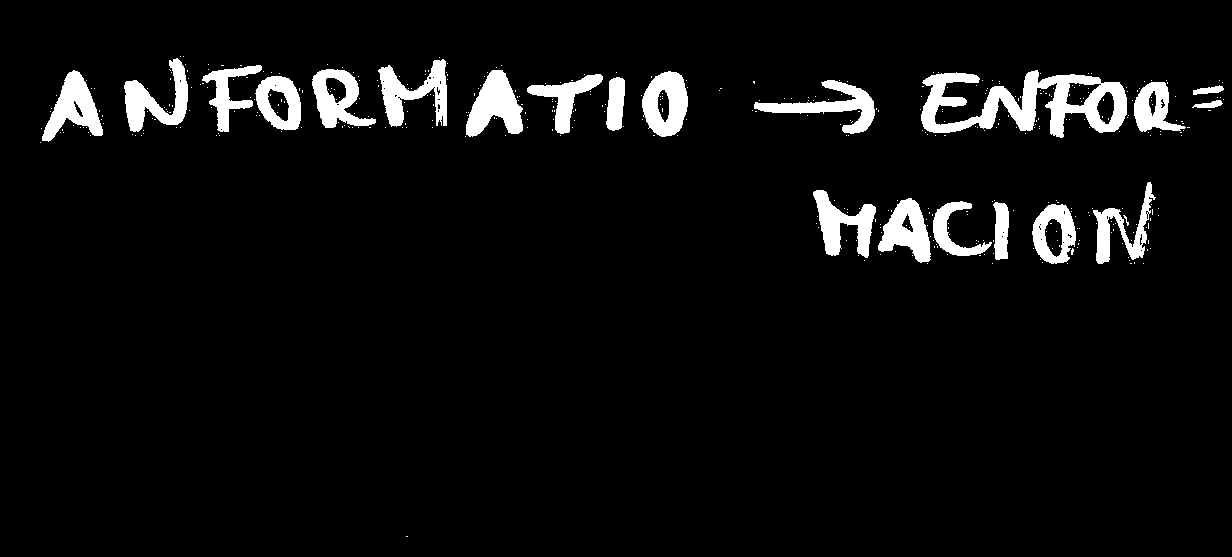 ANFORMATIO → ENFOR=
MACION